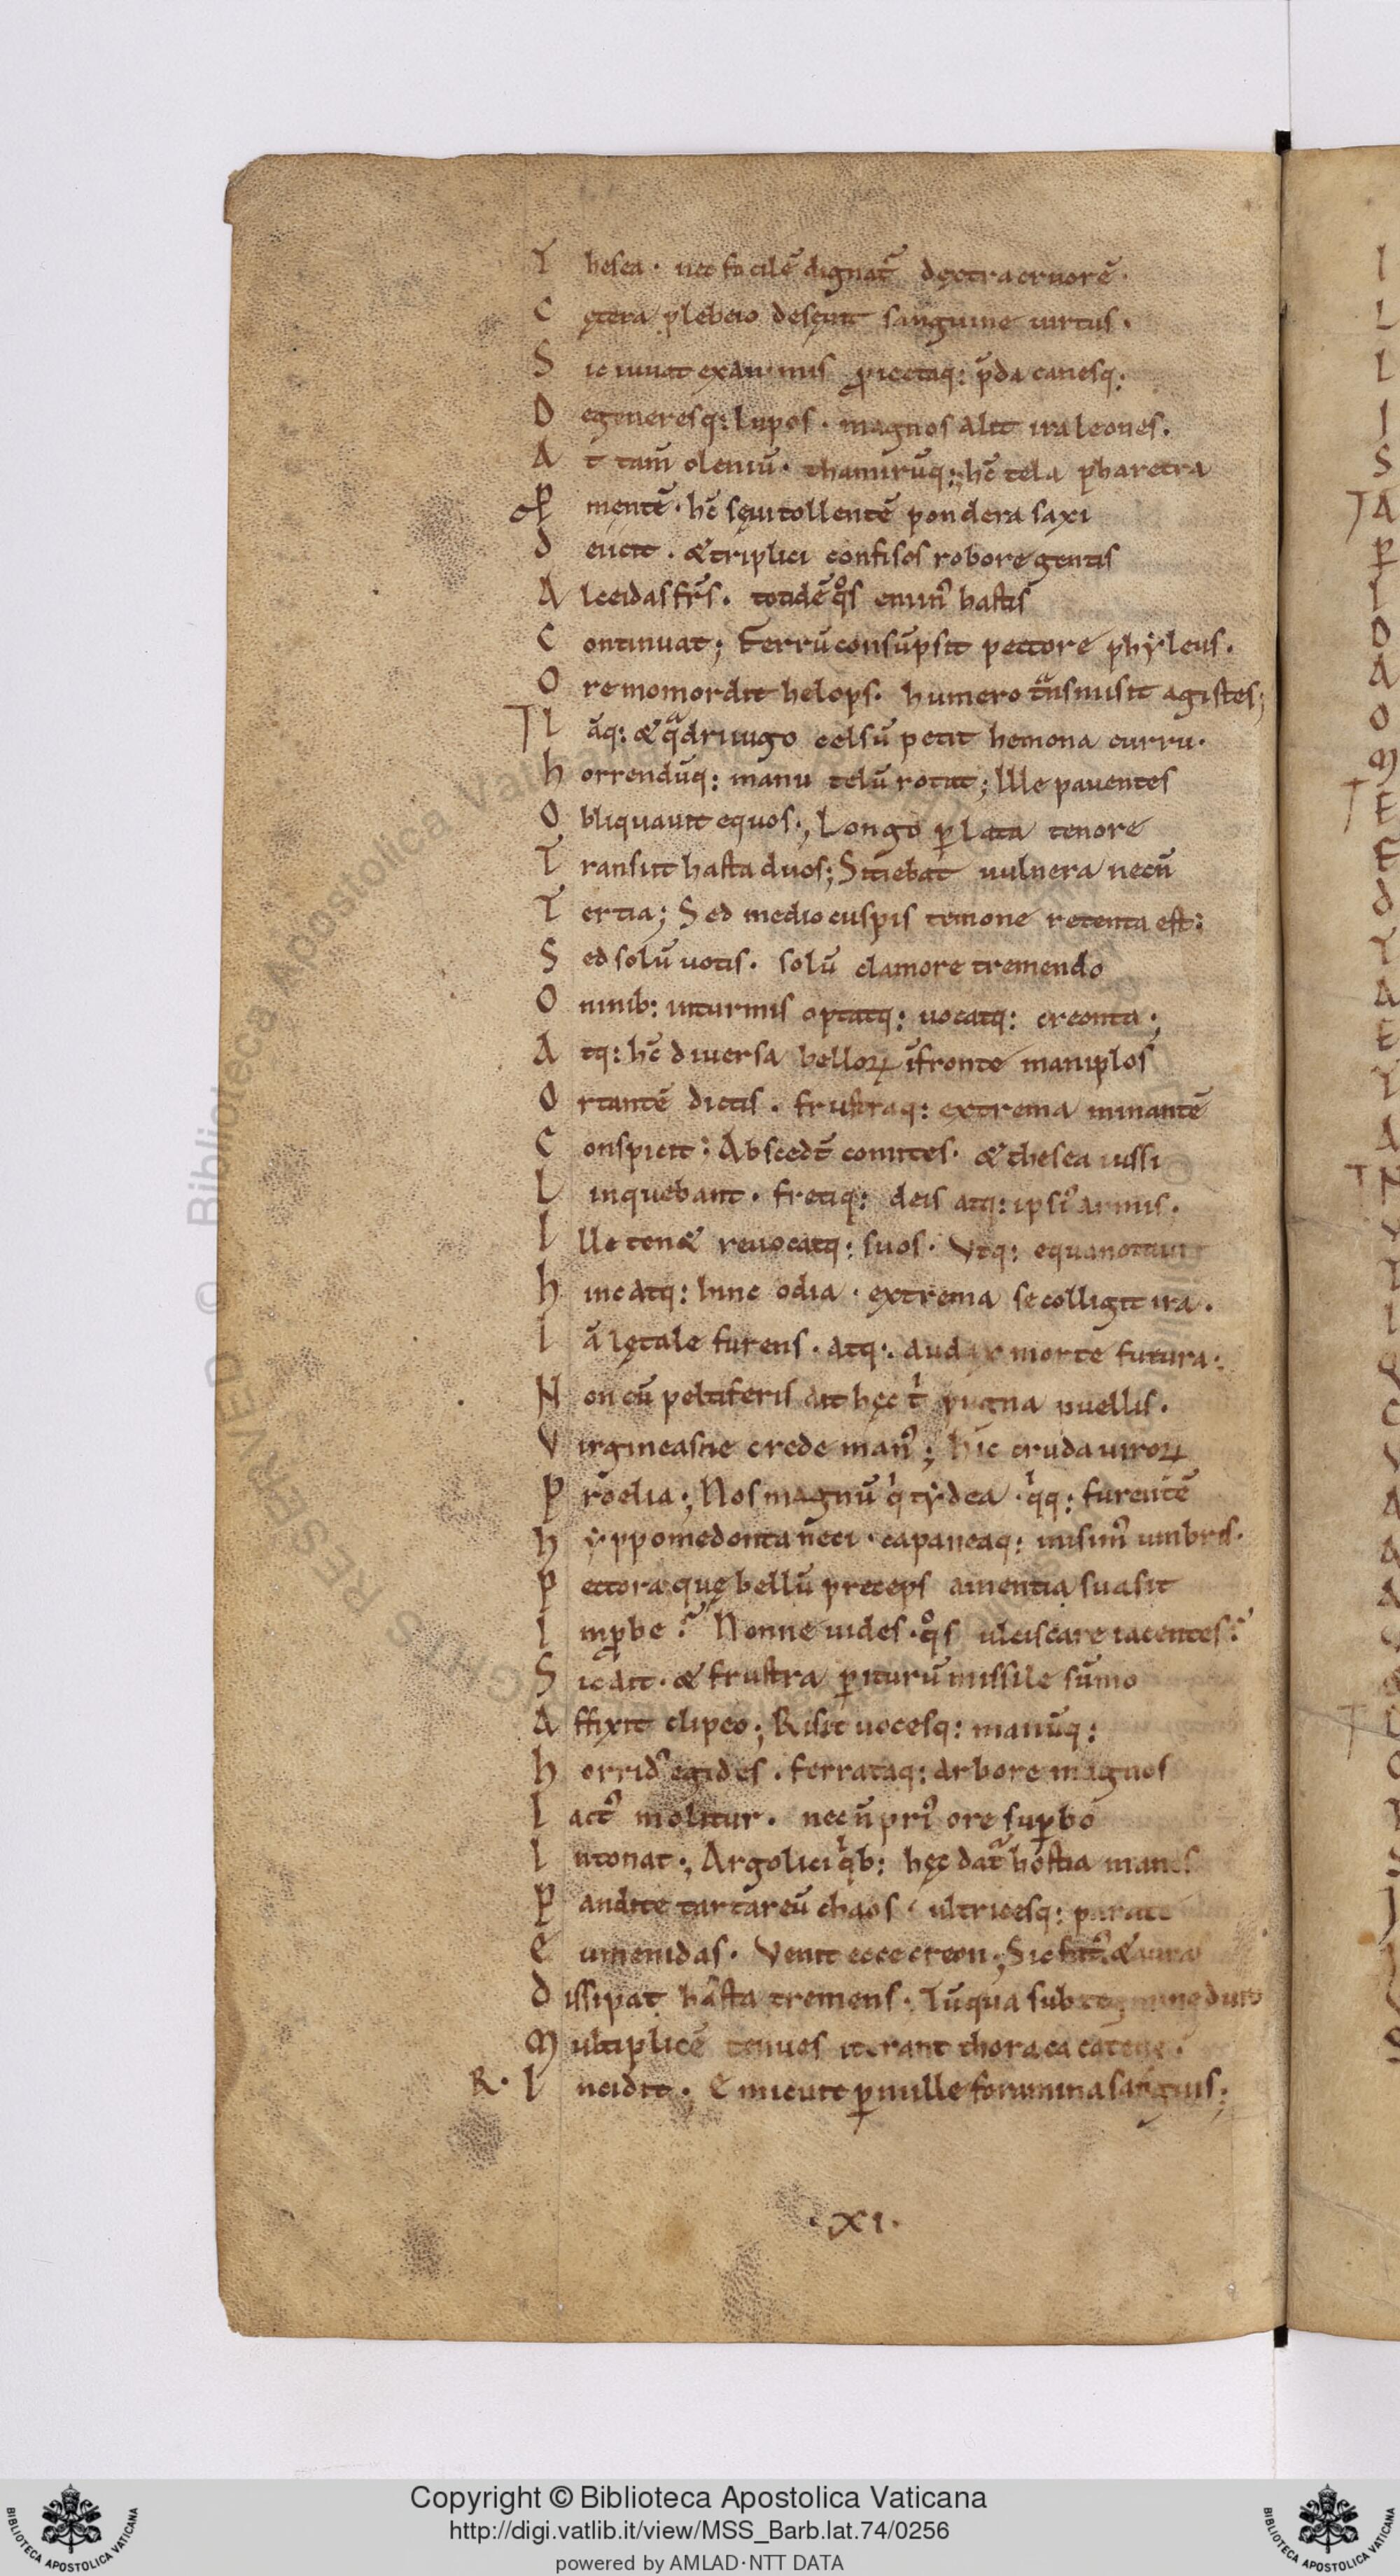 T hesea · nec facilē dignat̄ dęxtra cruorē ·
C ętera plebeio desęuit sanguine uirtus ·
S ic iuuat exanimis ꝓiectaq: p̄da canesq:
D egeneresq: lupos · magnos alit ira leones.
A t tam̄ oleniū · thamirūq:; hc̄ tela pharetra
P mentē · hc̄ sęui tollentē pondera saxi
d eicit . & triplici confisos robore gentis
A lceidas fr̄s . totidē qͦs emin᾽ hastis
C ontinuat; Ferrū consūpsit pectore phẏleus.
O re momordit helops. humero tᵃnsmisit agistes;
I āq: & qᵃdriiugo celsū petit hemona curru.
h orrendūq: manu telū rotat; Ille pauentes
O bliquauit equos; Longo ꝑlata tenore
T ransiit hasta duos; Sitiebat uulnera necn̄
T ertia; Sed medio cuspis temone retenta est:
S ed solū uotis . solū clamore tremendo
O mnib: inturmis optatq: uocatq: creonta;
A tq: hc̄ diuersa belloꝝ īfronte maniplos
O rtantē dictis . frustraq: extrema minantē
C onspicit; Abscedt̄ comites · & thesea iussi
L inquebant . fretiq: deis atq: ipsi᾽ armis.
I lle ten& reuocatq: suos · Vtq: equa notauit
h inc atq: hinc odia · extrema se colligit ira.
I ā lętale furens . atq: audax morte futura;
N on cū peltiferis ait hęc tⁱ pugna puellis.
V irgineas ne crede man᾽; hic cruda uiroꝝ
P roelia; Nos magnū qⁱ tẏdea · qⁱq: furentē
h ẏppomedonta neci · capaneaq: misim᾽ umbris·
P ectora quę bellū preceps amentia suasit
I mꝓbe? Nonne uides · qͦs ulciscare iacentes?
S ic ait · & frustra ꝑiturū missile sūmo
A ffixit clipeo; Risit uocesq: manūq:
h orrid᾽ egides . ferrataq: arbore magnos
I act᾽ molitur . necn̄ pri᾽ ore suꝑbo
I ntonat; Argolici qⁱb: hęc dat᷑ hostia manes
P andite tartareū chaos · ultricesq: parate
E umenidas . Venit ecce creon; Sic fat᾽ & auras
D issipat hasta tremens · Tūqua subtegmine duro
M ultiplicē tenues iterant thoraca catenę.
R. I ncidit. Emicuit ꝑ mille foramina sanguis;
· XI ·
I
L
I
I
S
A
P
I
D
A
O
M
E
E
d
T
A
E
T
A
N
Copyright © Biblioteca Apostolica Vaticana
http://digi.vatlib.it/view/MSS_Barb.lat.74/0256
powered by AMLAD·NTT DATA
BIBLIOTECA APOSTOLICA VATICANA
BIBLIOTECA APOSTOLICA VATICANA